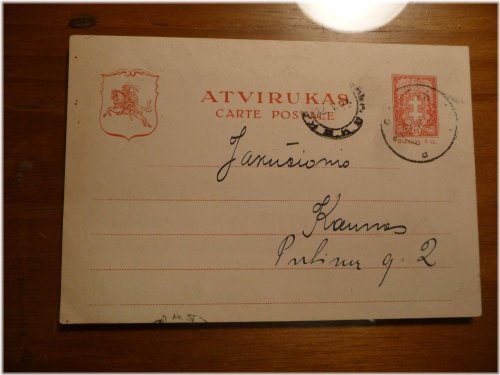 ATVIRUKAS
CARTE POSTALE
Jakučionio
Kaunas
Putinų g. 2